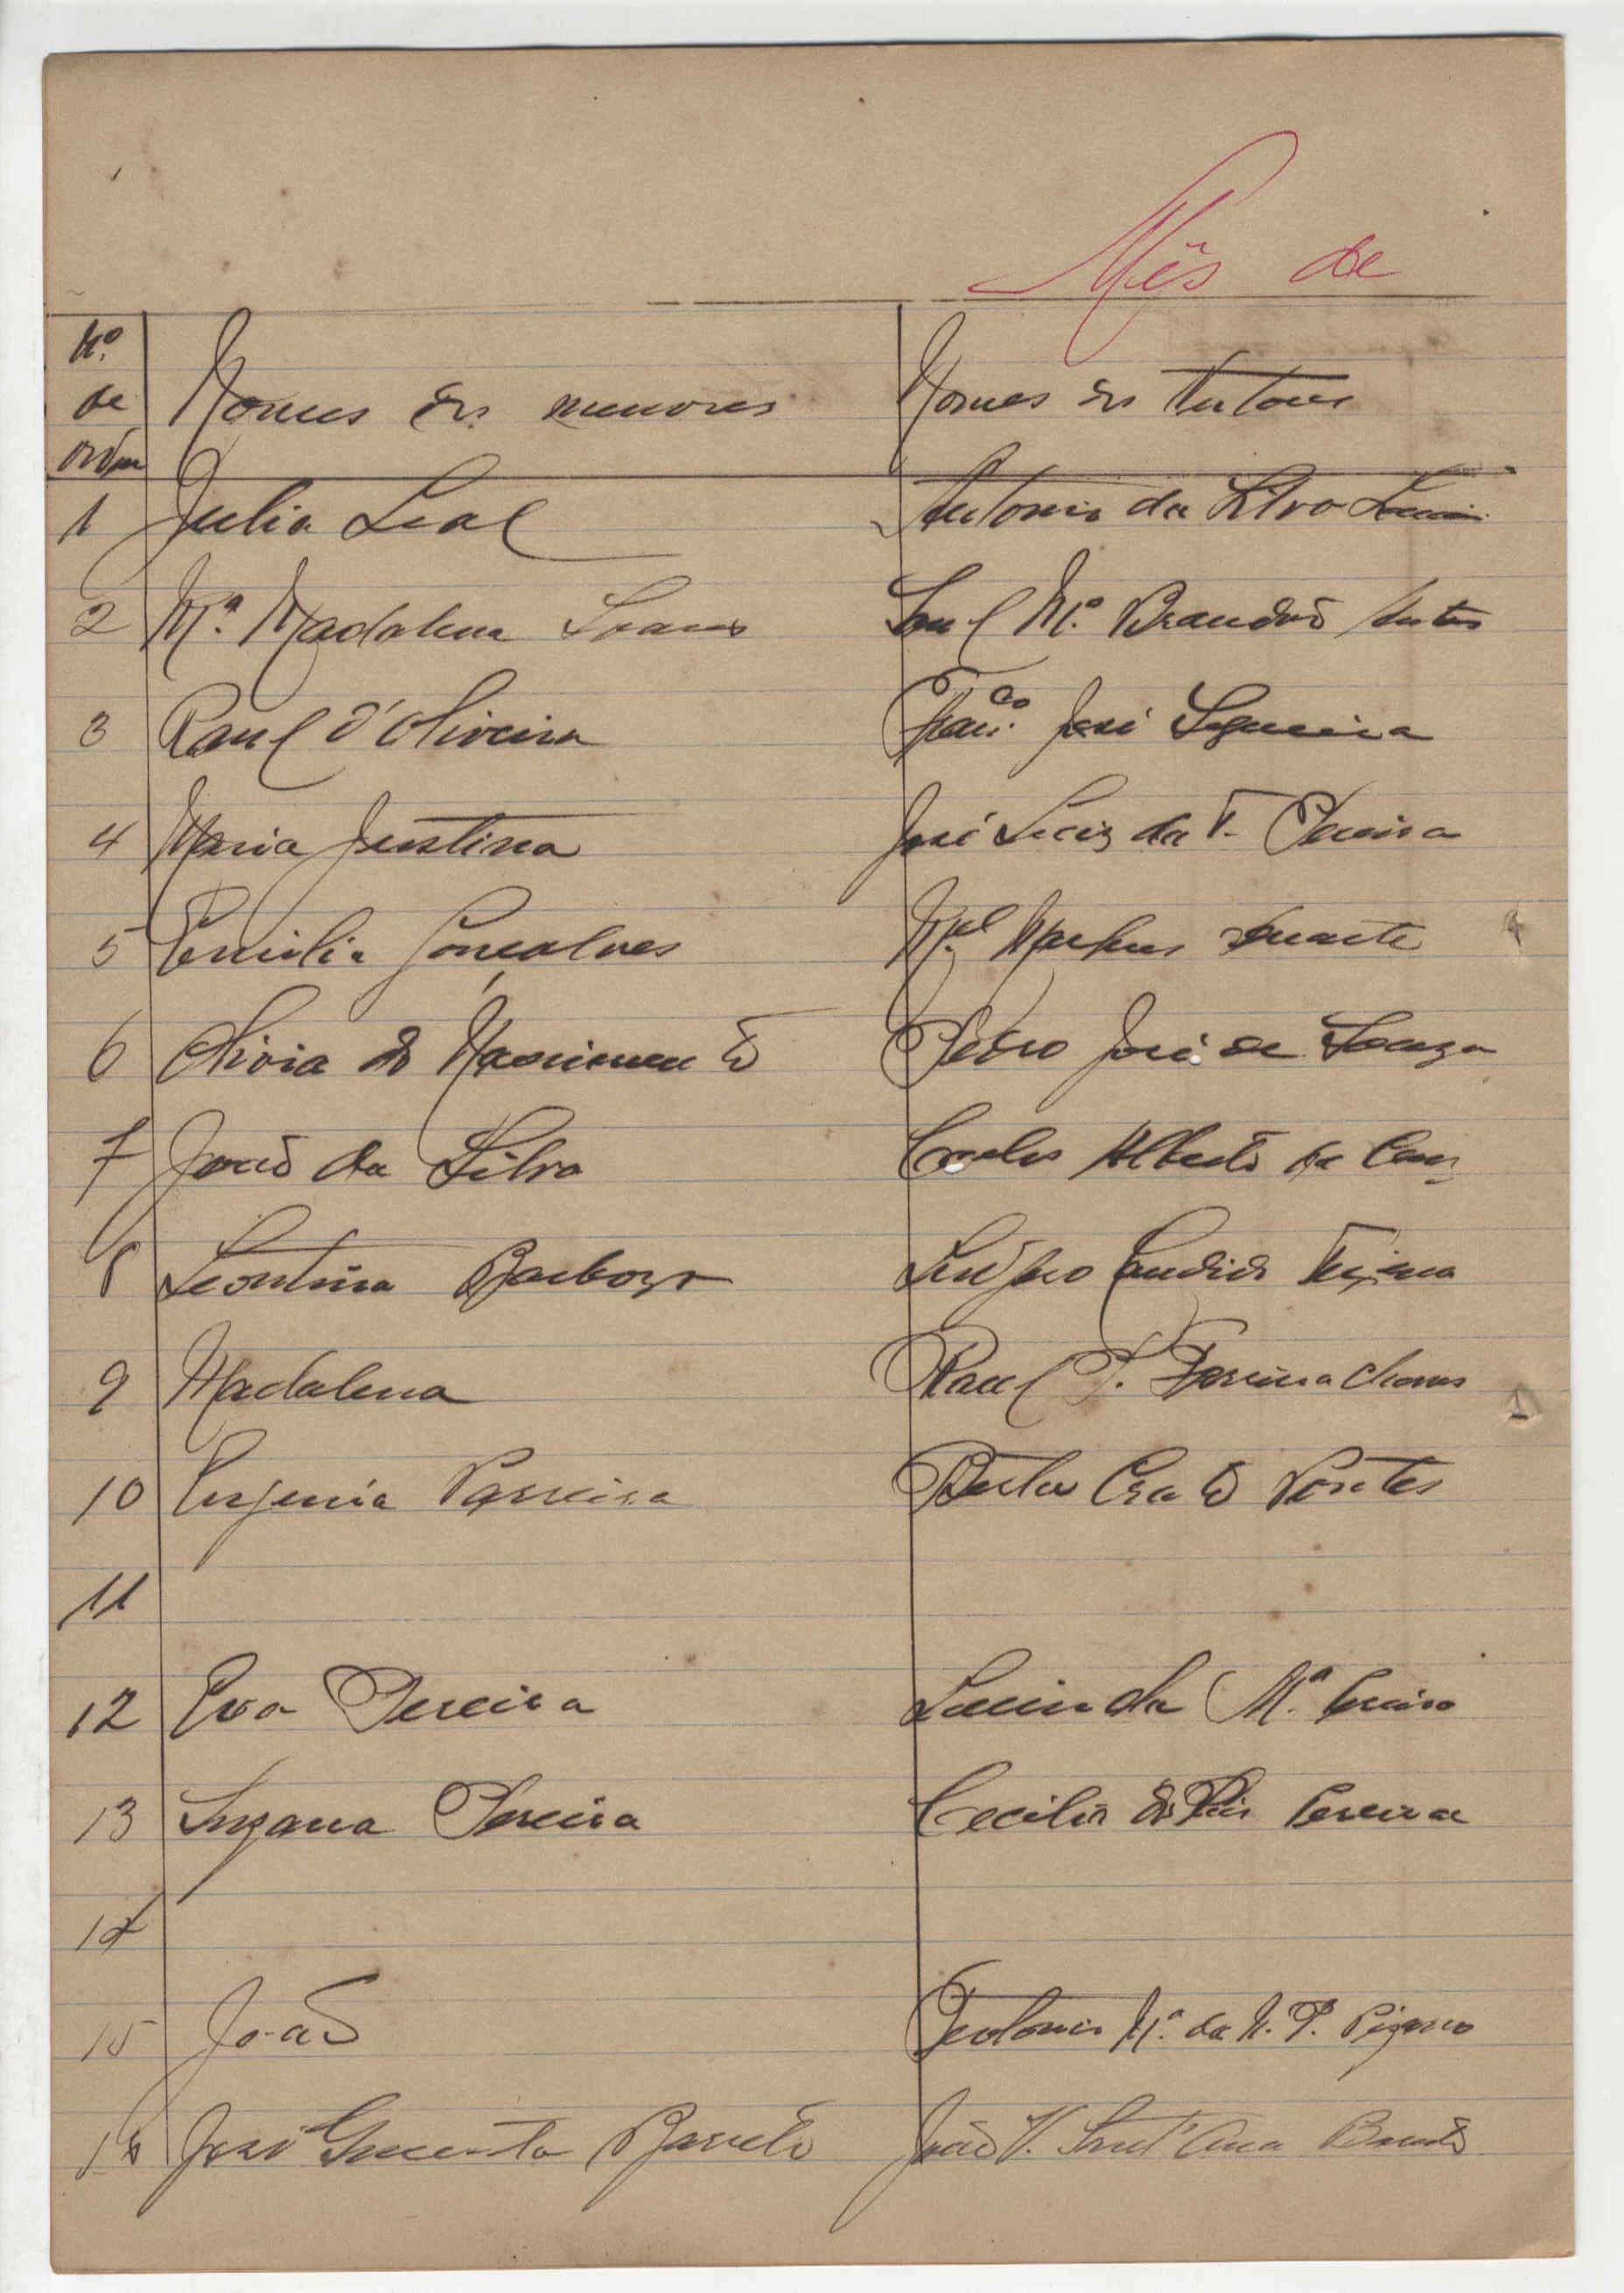 Mês de
Nº
de
ordem
Nomes dos menores
Nomes dos tutores
1 Julia Leal Antonio da Silva
2 Mª Madalena Soares Mª Brandão
3 Raul d'Oliveira Franco José Sequeira
4 Maria Justina José Luiz da F. Pereira
5 Emilia Gonçalves Mel Duarte
6 Olivia do Nascimento Pedro José de Souza
7 João da Silva Carlos Alberto da
8 Leontina Barbosa Candido
9 Madalena Raul P. Ferreira Chaves
10 Eugenia Parreira Pontes
11
12 Eva Pereira Lucinda Mª
13 Suzana Pereira Pereira
14
15 João Mª da N. P. Pizarro
16 José Barreto João V. Sant'Ana Barreto